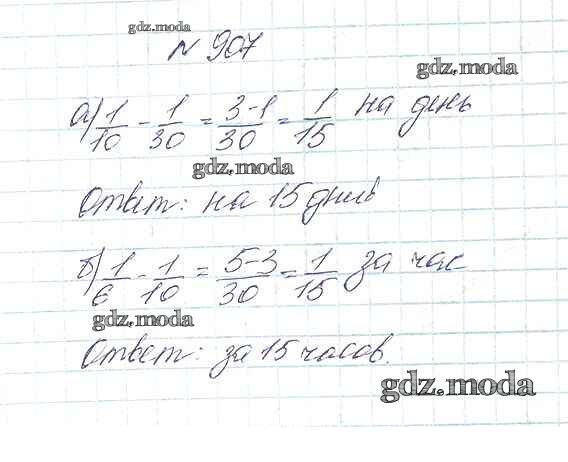 gdz.moda
№ 907
gdz.moda
а) 1/10 - 1/30 = 3-1/30 = 1/15 на день
gdz.moda
Ответ: на 15 дней
б) 1/6 - 1/10 = 5-3/30 = 1/15 за час
gdz.moda
Ответ: за 15 часов.
gdz.moda